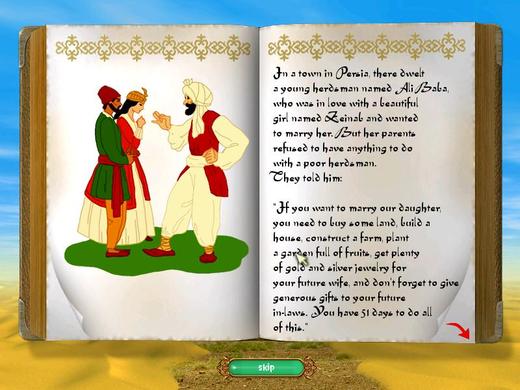 In a town in Persia, there dwelt
a young herdsman named Ali Baba,
who was in love with a beautiful
girl named Zeinab and wanted
to marry her. But her parents
refused to have anything to do
with a poor herdsman.
They told him:
"If you want to marry our daughter,
you need to buy some land, build a
house, construct a farm, plant
a garden full of fruits, get plenty
of gold and silver jewelry for
your future wife, and don't forget to give
generous gifts to your future
in-laws. You have 51 days to do all
of this."
skip